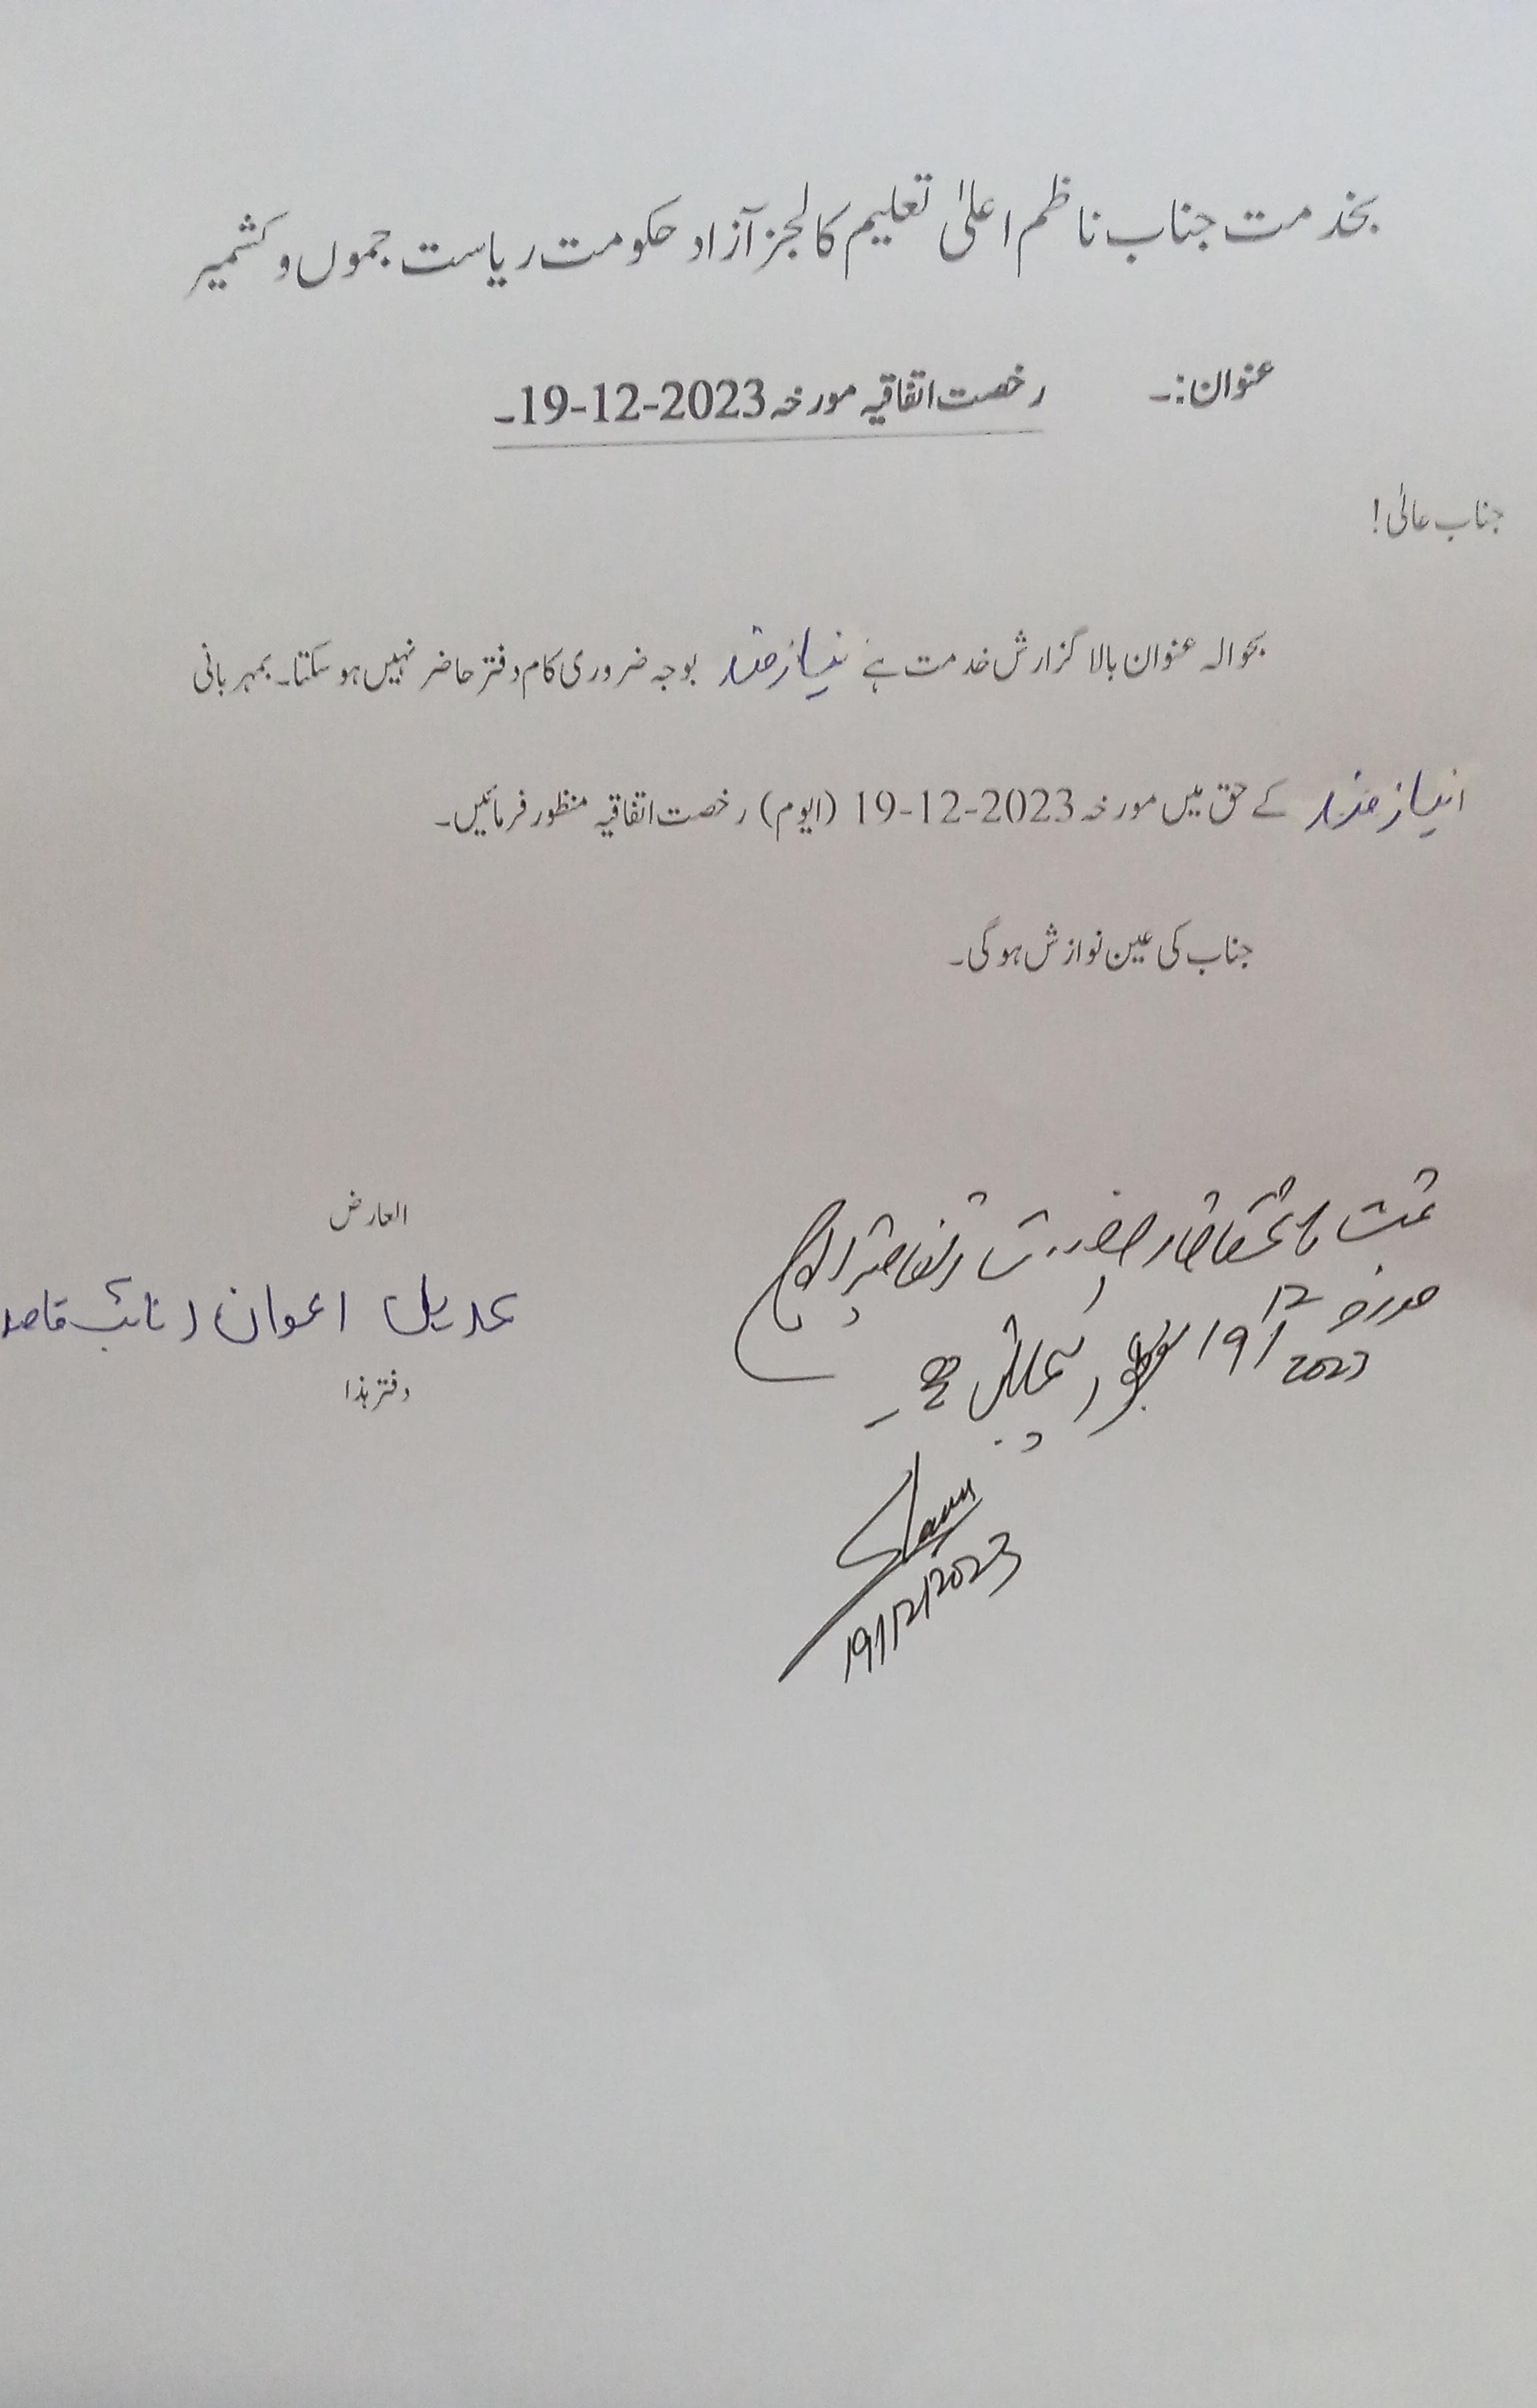 بخدمت جناب ناظم اعلیٰ تعلیم کالجز آزاد حکومت ریاست جموں و کشمیر
عنوان:۔ رخصت اتفاقیہ مورخہ 2023-12-19۔
جناب عالی!
بحوالہ عنوان بالا گزارش خدمت ہے نیازمند بوجہ ضروری کام دفتر حاضر نہیں ہو سکتا۔ بمہربانی
نیازمند کے حق میں مورخہ 2023-12-19 (ایوم) رخصت اتفاقیہ منظور فرمائیں۔
جناب کی عین نوازش ہو گی۔
العارض
عدیل اعوان نائب قاصد
دفتر ہذا
مورخہ 19/12/2023
19/12/2023